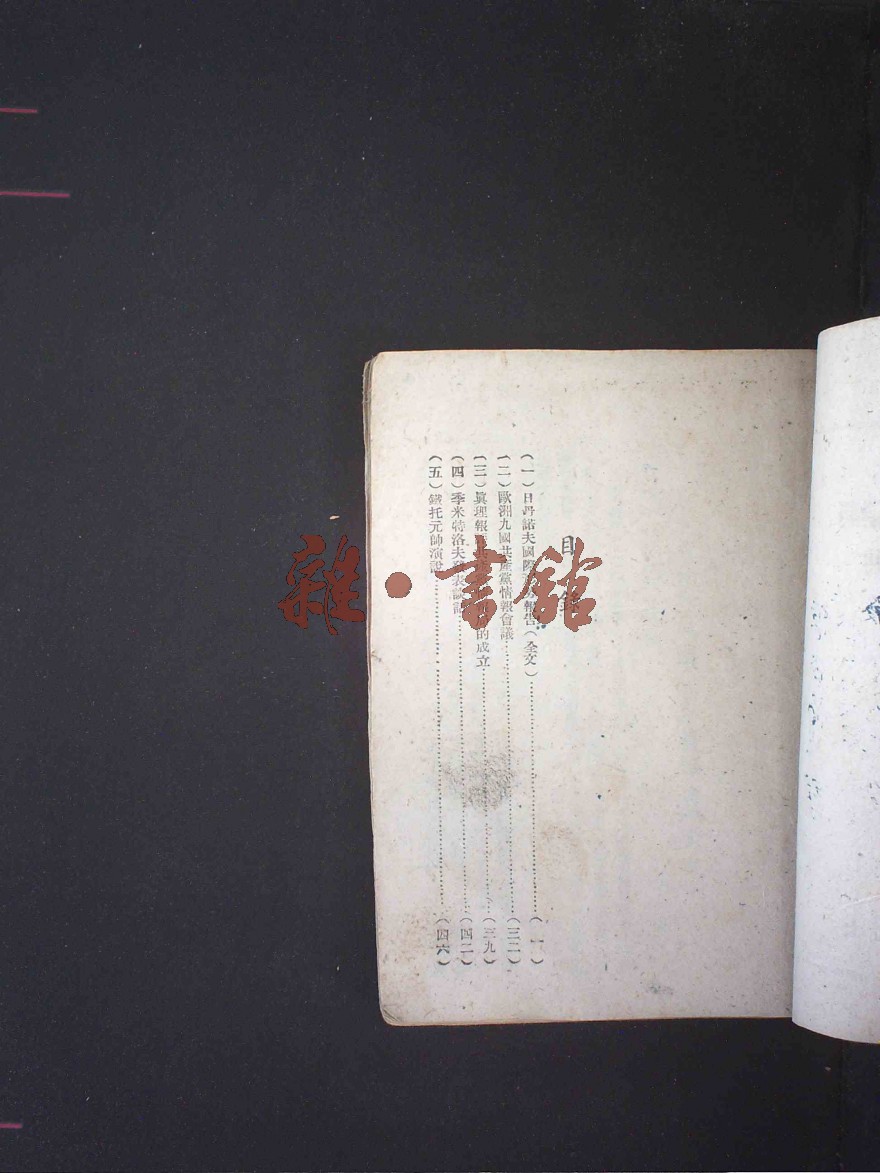 目錄
(一)日丹諾夫國際報告(全文)……(一)
(二)歐洲九國共產黨情報會議……(三二)
(三)眞理報共的成立……(三九)
(四)季米特洛夫發表談話……(四二)
(五)鐵托元帥演說……(四六)
雜·書館